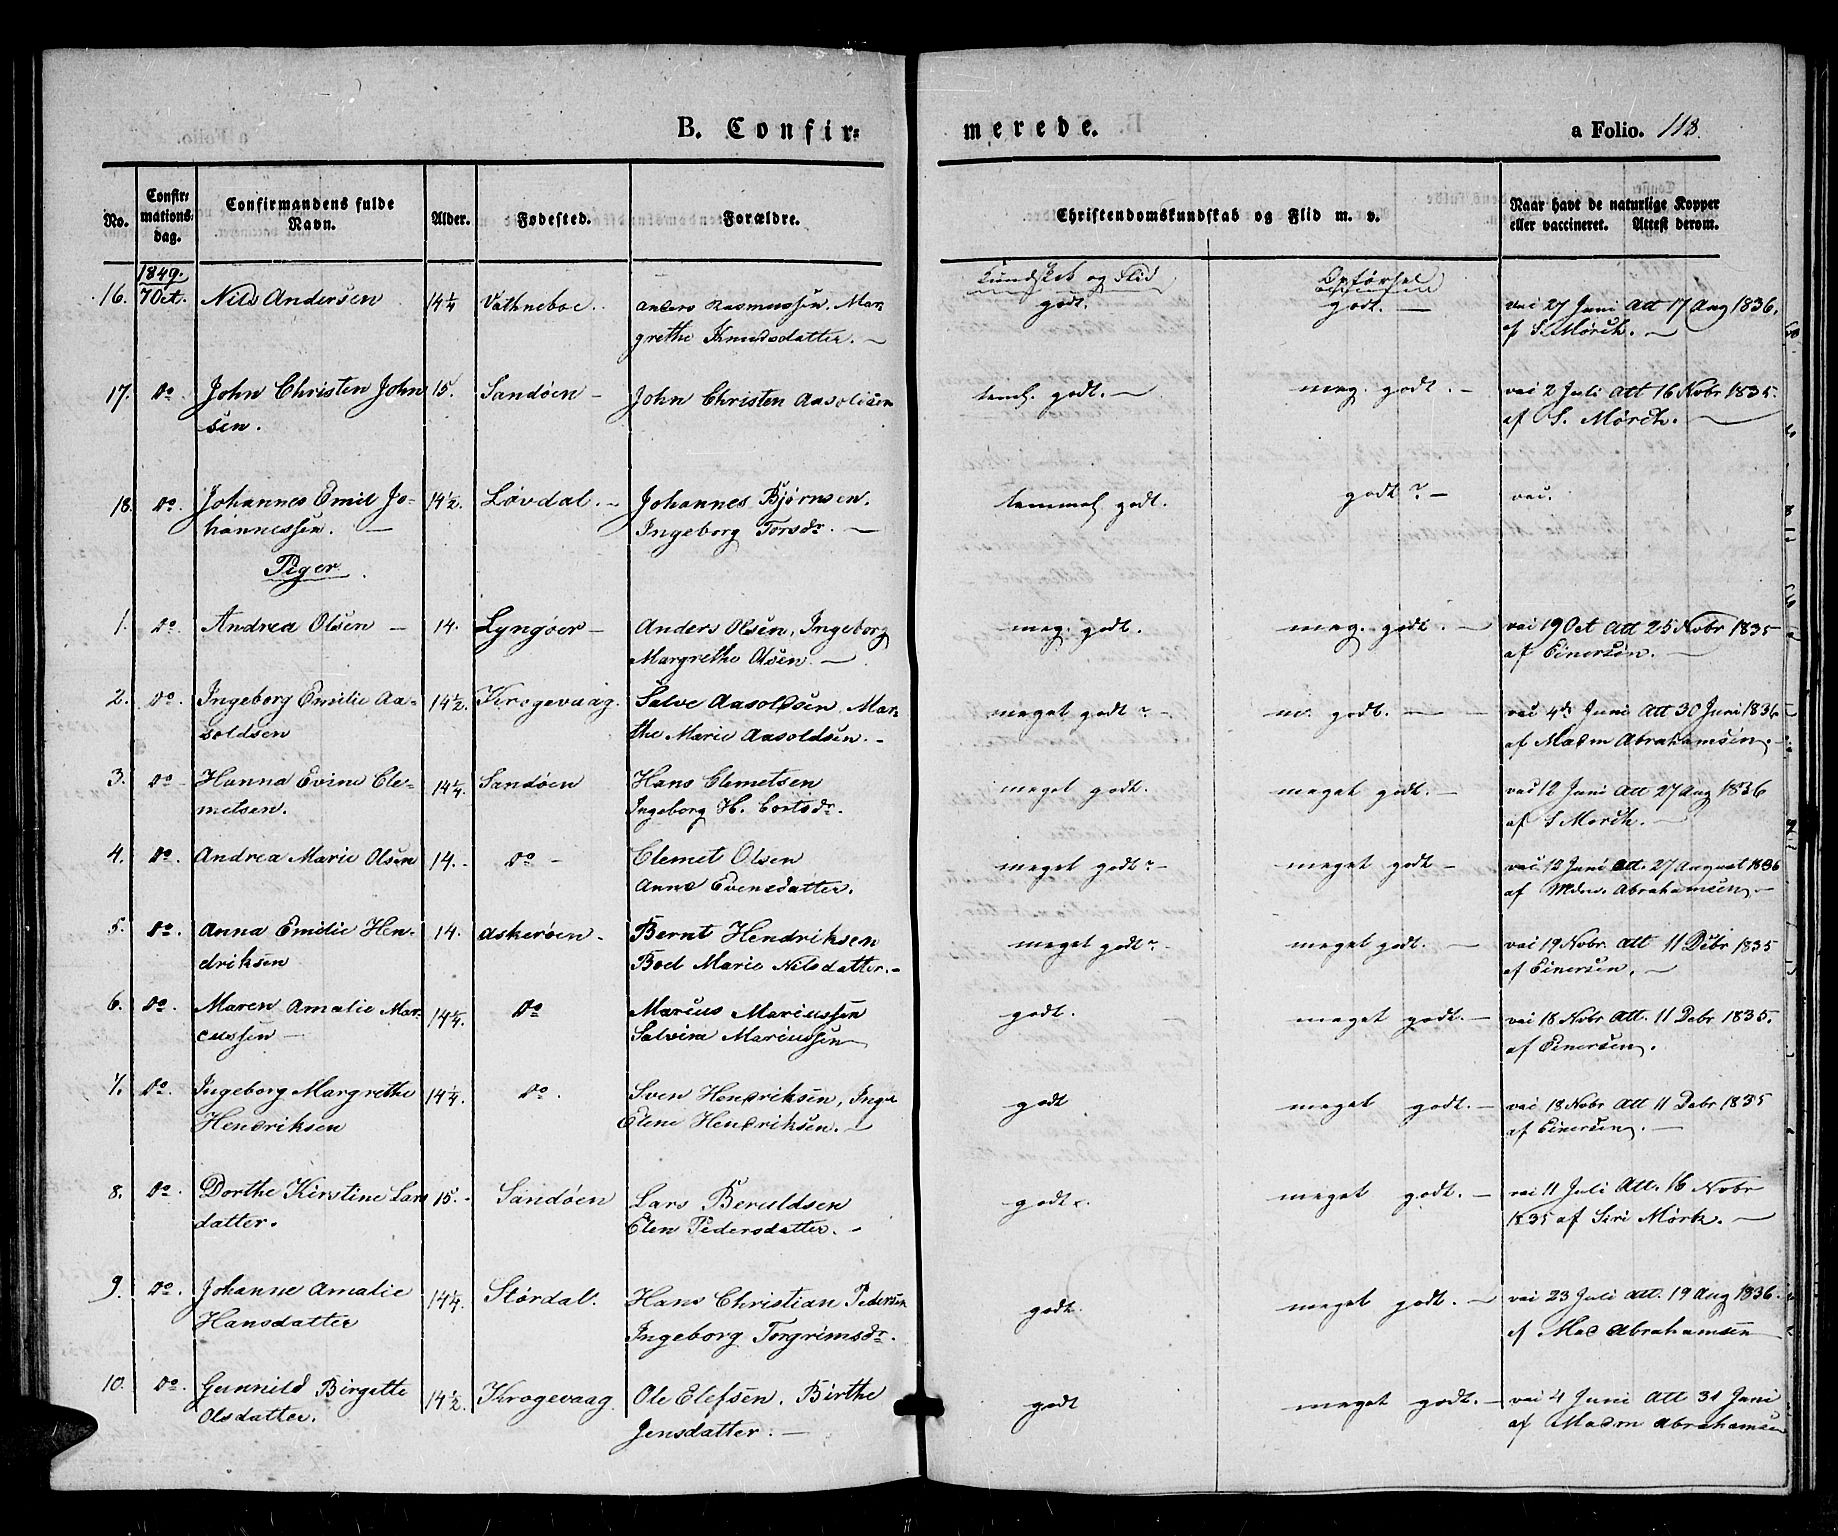 B. Confir=
merede.
a Folio. 118.
No.
Confir=
mations=
dag.
Confirmandens fulde
Navn.
Alder.
Fødested.
Forældre.
Christendomskundskab og Flid m. v.
Naar havt de naturlige Kopper
eller vaccineret. Attest derom.
1849.
Kundskab og Flid
Opførsel
16. 7 Oct. Nils Andersen 14¼ Vathneboe. Anders Rasmussen. Mar= godt. godt. — vac 27 Juni Att 17 Aug 1836.
grethe Knudsdatter. — af S. Mørch. —
17. Do. John Christen John 15. Sandøen — John Christen Aasoldsen teml. godt. — meg. godt. — vac 2 Juli Att 16 Nobr 1835.
sen. af S. Mørch. —
18. Do. Johannes Emil Jo- 14½. Løvdal. — Johannes Bjørnsen. temmel godt. godt — vac.
hannessen. — Ingeborg Torsdr. —
Piger.
1. Do. Andrea Olsen — 14. Lyngøer — Anders Olsen, Ingeborg meg. godt. meg. godt. — vac 19 Oct Att 25 Nobr 1835
Margrethe Olsen. — af Einersen. —
2. Do. Ingeborg Emilie Aa- 14½. Krogevaag. Salve Aasoldsen, Mar= meget godt — m. godt. — vac 4de Juni Att 30 Juni 1836
soldsen the Marie Aasoldsen. — af Madm Abrahamsen.
3. Do — Hanna Evine Cle- 14¼. Sandøen Hans Clemetsen meget godt. meget godt. — vac 12 Juni Att 27 Aug 1836
metsen. Ingeborg H. Cortsdr. af S Mørch. —
4. Do. Andrea Marie Olsen 14. — Do — Clemet Olsen meget godt — meget godt — vac 12 Juni Att. 27 August 1836
Anne Evensdatter. af Mdm. Abrahamsen. —
5. Do. Anna Emilie Hen- 14. Askerøen — Bernt Hendriksen meget godt — meget godt. — vac 19 Nobr. Att 11 Debr 1835
driksen Boel Marie Nilsdatter. — af Einersen. —
6. Do. Maren Amalie Mar- 14¼. Do Marcus Marcussen godt. meget godt. — vac 18 Nobr Att. 11 Debr 1835.
cussen — Salvine Marcussen af Einersen.
7. Do. Ingeborg Margrethe 14¼. Do. Sven Hendriksen, Inge godt meget godt. — vac 18 Nobr Att 11 Debr 1835
Hendriksen Elene Hendriksen. — af Einersen. —
8. Do. Dorthe Kirstine Lars 15. — Sandøen Lars Beruldsen godt. meget godt. — vac 11 Juli Att. 16 Nobr
datter. Elen Pedersdatter. — 1835 af Siri Mørk. —
9. Do. Johanne Amalie 14¼. Størdal. Hans Christian Pedersen godt. meget godt. — vac 23 Juli Att. 19 Aug 1836.
Hansdatter Ingeborg Torgrimsdr. af Mad Abrahamsen
10. Do. Gunnild Birgette 14½. Krogevaag Ole Elefsen. Birthe godt meget godt. — vac 4 Juni Att 31 Juni
Olsdatter. Jensdatter. — af Madm Abrahamsen